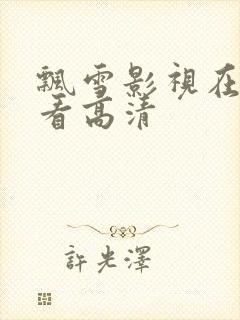 飄雪影視在
看高清
許光澤